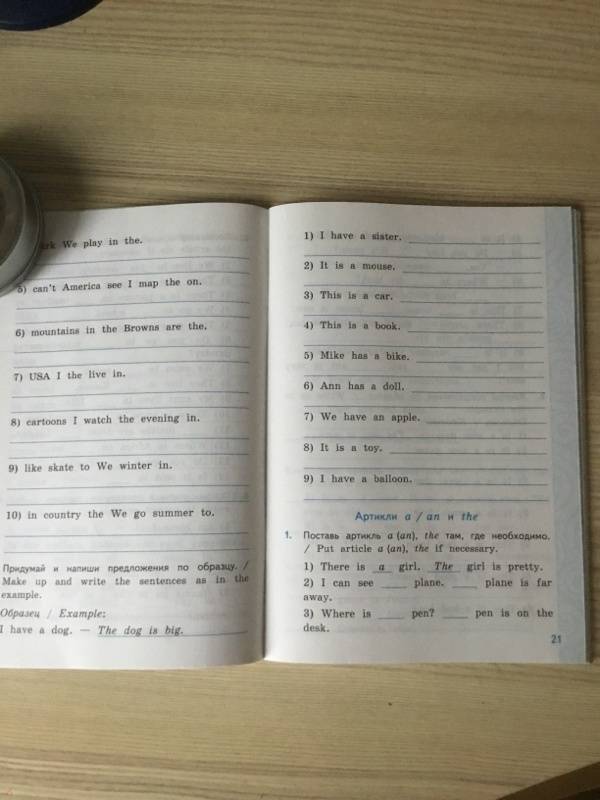 We play in the.
5) can't America see I map the on.
6) mountains in the Browns are the.
7) USA I the live in.
8) cartoons I watch the evening in.
9) like skate to We winter in.
10) in country the We go summer to.
Придумай и напиши предложения по образцу. /
Make up and write the sentences as in the
example.
Образец / Example:
I have a dog. — The dog is big.
1) I have a sister.
2) It is a mouse.
3) This is a car.
4) This is a book.
5) Mike has a bike.
6) Ann has a doll.
7) We have an apple.
8) It is a toy.
9) I have a balloon.
Артикли a / an и the
1. Поставь артикль a (an), the там, где необходимо.
/ Put article a (an), the if necessary.
1) There is a girl. The girl is pretty.
2) I can see ____ plane. ____ plane is far
away.
3) Where is ____ pen? ____ pen is on the
desk.
21